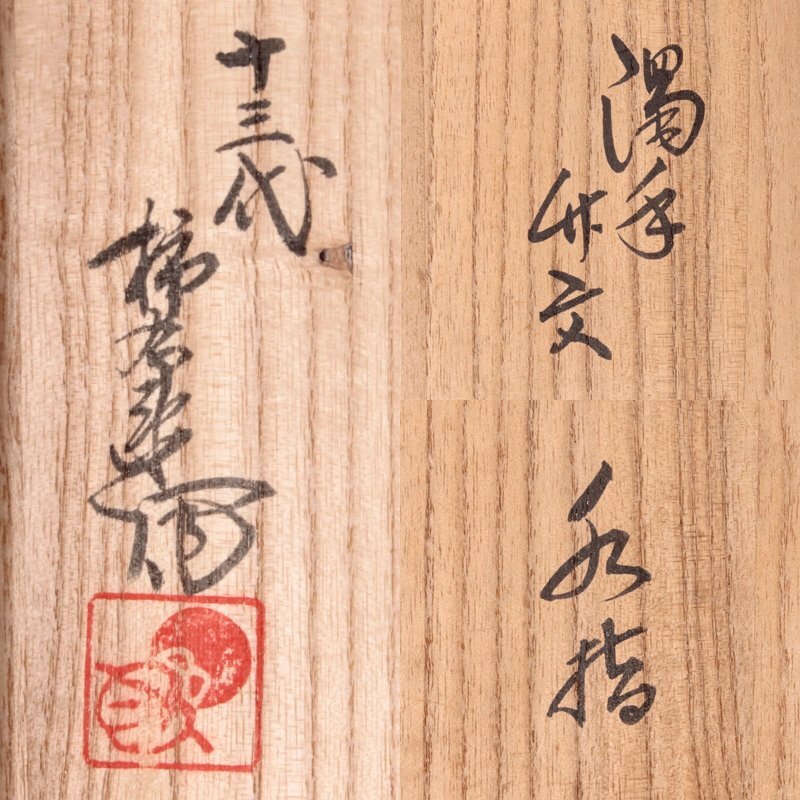 濁手
竹文
水指
十三代
柿右衛門